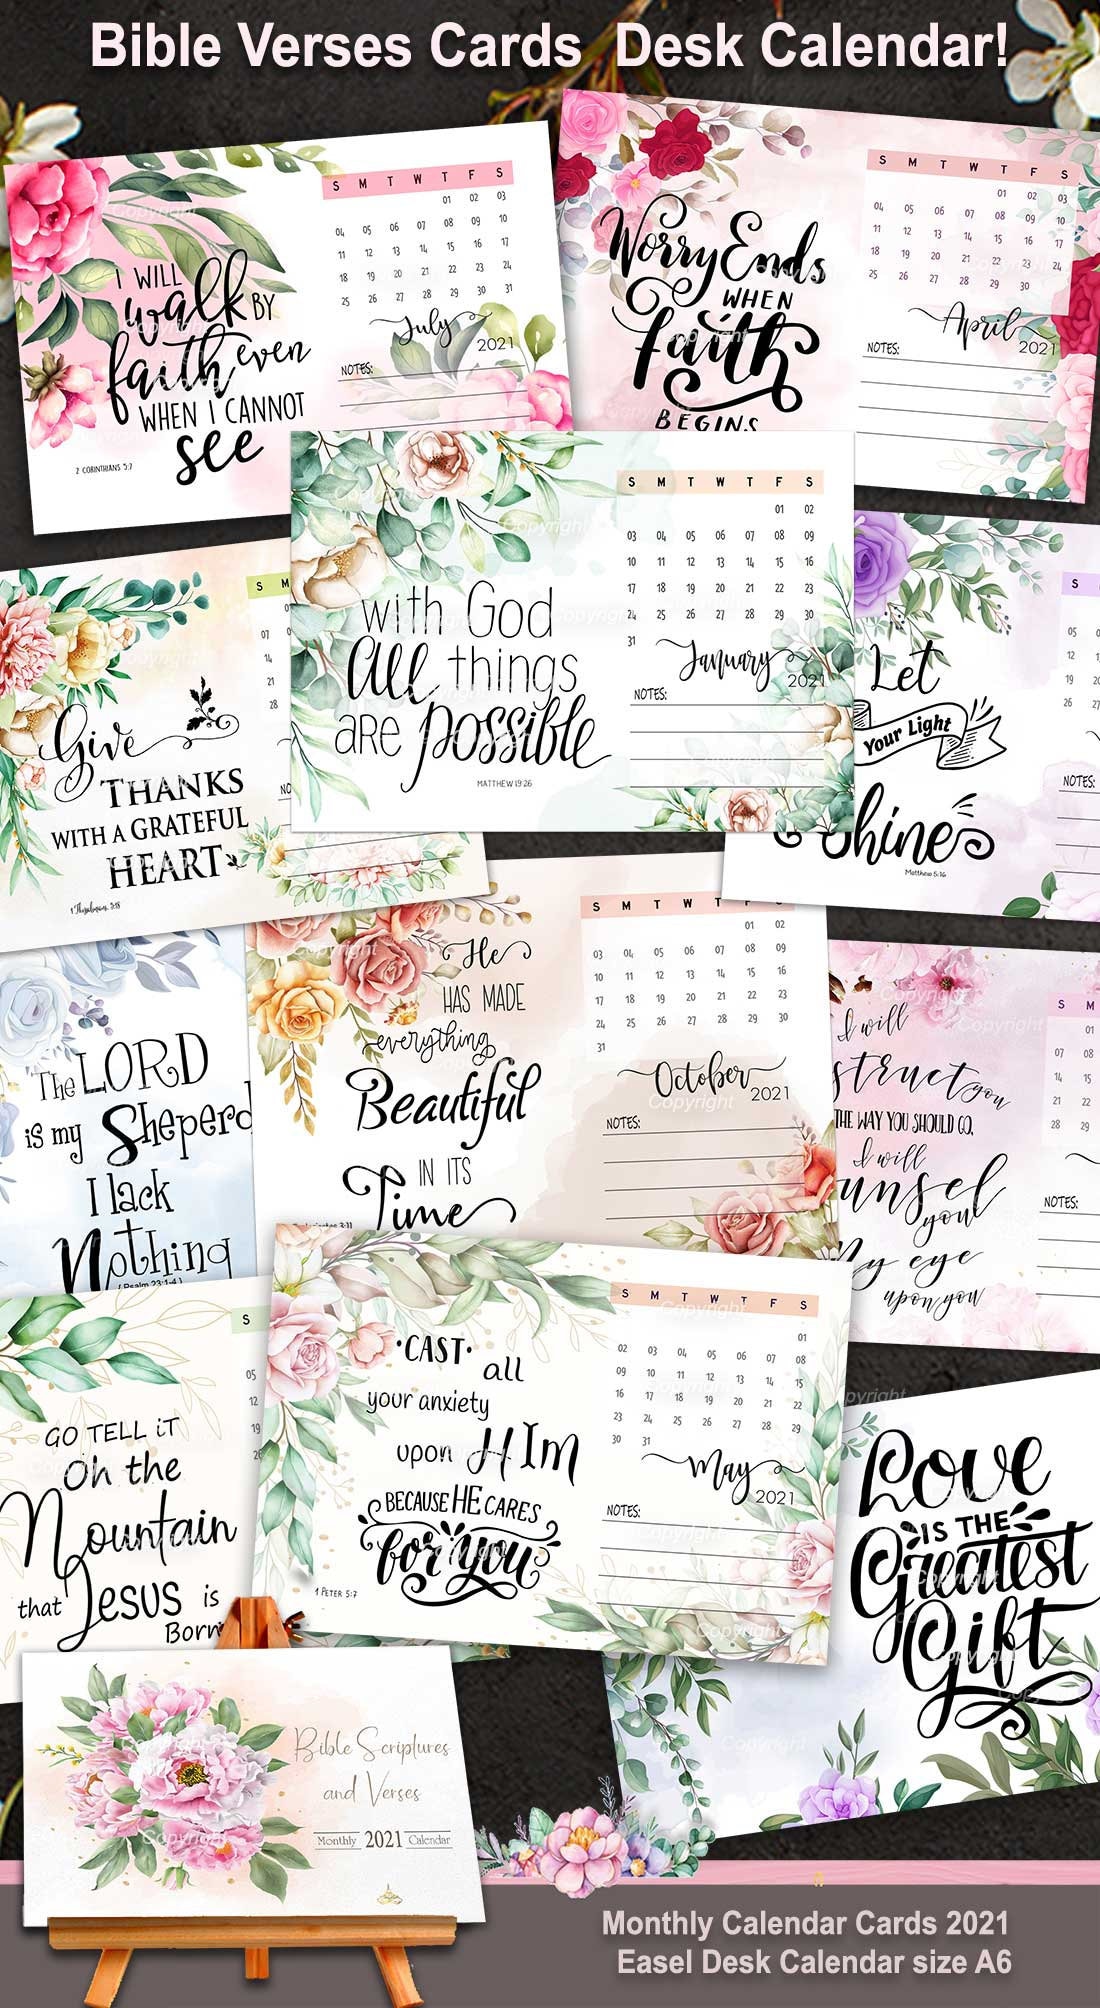 Bible Verses Cards Desk Calendar!
I WILL
walk BY
faith even
WHEN I CANNOT
see
2 CORINTHIANS 5:7
S M T W T F S
01 02 03
04 05 06 07 08 09 10
11 12 13 14 15 16 17
18 19 20 21 22 23 24
25 26 27 28 29 30 31
July
2021
NOTES:
Worry Ends
WHEN
faith
BEGINS
S M T W T F S
01 02 03
04 05 06 07 08 09 10
11 12 13 14 15 16 17
18 19 20 21 22 23 24
25 26 27 28 29 30
April
2021
NOTES:
with God
All things
are possible
MATTHEW 19:26
S M T W T F S
01 02
03 04 05 06 07 08 09
10 11 12 13 14 15 16
17 18 19 20 21 22 23
24 25 26 27 28 29 30
31
January
2021
NOTES:
Give
THANKS
WITH A GRATEFUL
HEART
1 Thessalonians 5:18
S M
07
14
21
28
Let
Your Light
Shine
Matthew 5:16
S
05
12
19 20
26 27
NOTES:
The LORD
is my Sheperd
I lack
Nothing
(Psalm 23:1-4)
He
HAS MADE
everything
Beautiful
IN ITS
Time
3:11
S M T W T F S
01 02
03 04 05 06 07 08 09
10 11 12 13 14 15 16
17 18 19 20 21 22 23
24 25 26 27 28 29 30
31
October
2021
NOTES:
I will
struct you
THE WAY YOU SHOULD GO,
I will
unsel
you
My eye
upon you
S M
01
07 08
14 15
21 22
28 29
NOTES:
GO TELL iT
On the
Mountain
that Jesus is
Born
S
05
12
19
26
CAST all
your anxiety
upon HIM
BECAUSE HE CARES
for you
1 PETER 5:7
S M T W T F S
01
02 03 04 05 06 07 08
09 10 11 12 13 14 15
16 17 18 19 20 21 22
23 24 25 26 27 28 29
30 31
May
2021
NOTES:
Love
IS THE
Greatest
Gift
Bible Scriptures
and Verses
Monthly 2021 Calendar
Monthly Calendar Cards 2021
Easel Desk Calendar size A6
Copyright